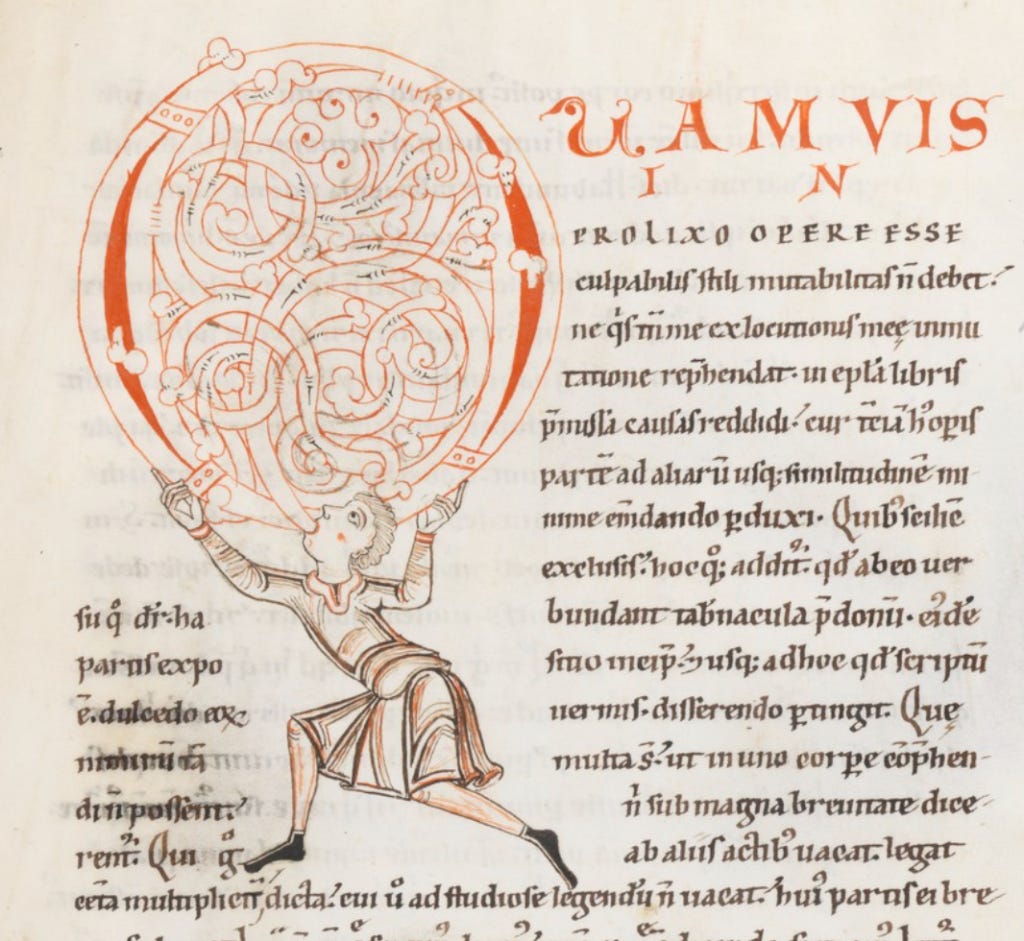 QUAMVIS
IN
PROLIXO OPERE ESSE
culpabilis stili mutabilitas n̄ debet:
ne q̄s tm̄ me ex locutionis meę inmu
tatione rep̄hendat. in epl̄a libris
p̄missa causas reddidi. cur t̄ciā hꝰ opis
partē ad aliarū usq; similitudinē mi
nime em̄dando ꝑduxi. Quibꝰ
exclusis. hoc q̊q; addit᷑. qd̄ ab eo uer
su q̊ dr̄. ha bundant tab̄nacula p̄donū. eiꝰdē
partis expo sitio usq; ad hoc qd̄ scriptū
ē. dulcedo eoꝝ uermis. disserendo ꝑtingit. Quę
nimirū tā multa s̄. ut in uno corꝑe cōp̄hen
di n̄ sub magna breuitate dice
rent᷑. Qui ig̊ ab aliis actibꝰ uacat. legat
cet̄a multiplicit̄ dicta. cui ū ad studiose legendū n̄ uacat. huiꝰ partis ei bre